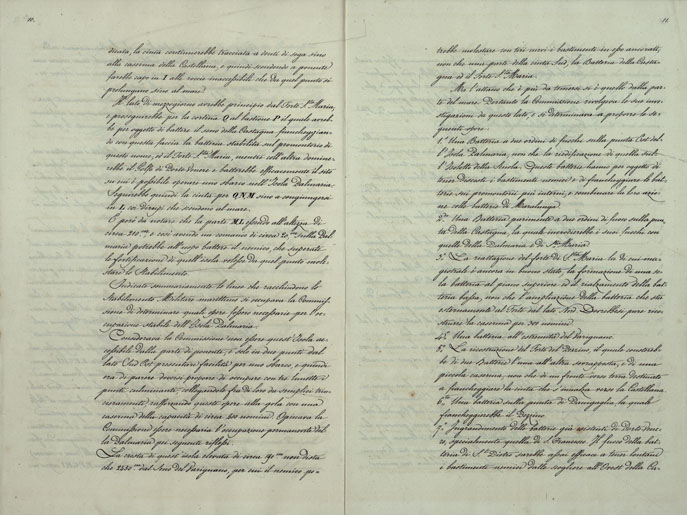 10.
dicata, la cinta continuerebbe tracciata a denti di sega sino
alla caserma della Castellana, e quindi scendendo a ponente
farebbe capo in I alle roccie inaccessibili che da quel punto si
prolungano sino al mare.
Il lato di mezzogiorno avrebbe principio dal Forte S.ta Maria,
e proseguirebbe per la cortina O al bastione P il quale avreb-
be per oggetto di battere il seno della Castagna fiancheggian-
do con questa faccia la batteria stabilita sul promontorio di
questo nome, ed il Forte S.ta Maria, mentre coll'altra domine-
rebbe il Golfo di Porto Venere e batterebbe efficacemente il sito
su cui è possibile operare uno sbarco nell'Isola Palmaria.
Seguirebbe quindi la cinta per QNM sino a congiungersi
in L coi dirupi che scendono al mare.
È però da notare che la parte ML essendo all'altezza di
circa 210.m e così avendo un comando di circa 20.m sulla Pal-
maria potrebbe all'uopo battere il nemico, che superate
le fortificazioni di quell'isola volesse da quel punto mole-
stare lo Stabilimento.
Indicate sommariamente le linee che racchiudono lo
Stabilimento Militare marittimo si occupava la Commissio-
ne di determinare quali opere fossero necessarie per l'oc-
cupazione stabile dell'Isola Palmaria.
Considerava la Commissione non essere quest'Isola ac-
cessibile dalla parte di ponente, e solo in due punti dal
lato Sud Est presentare facilità per uno sbarco, e quindi
era di parere doversi proporre di occupare con tre lunette i
punti culminanti, collegandole fra di loro da semplici trin-
ceramenti, rafforzando queste opere alla gola con una
caserma della capacità di circa 400 uomini. Opinava la
Commissione essere necessaria l'occupazione permanente del-
la Palmaria pei seguenti riflessi.
La cresta di quest'isola elevata di circa 190.m non dista
che 2250.m dal Seno del Varignano, per cui il nemico po-
11.
trebbe molestare con tiri curvi i bastimenti in esso ancorati,
non che una parte della cinta Sud, la Batteria della Casta-
gna ed il Forte S.ta Maria.
Ma l'attacco che è più da temersi si è quello dalla par-
te del mare. Pertanto la Commissione rivolgeva le sue inve-
stigazioni da questo lato, e si determinava a proporre le se-
guenti opere.
1.a Una Batteria a due ordini di fuochi sulla punta Est del-
l'Isola Palmaria, non che la riedificazione di quella sul-
l'Isolotto della Scuola. Queste batterie hanno per oggetto di
tenere discosti i bastimenti nemici e di fiancheggiare le bat-
terie sui promontorii più interni, e combinare la loro azio-
ne colle batterie di Maralunga.
2.a Una Batteria parimenti a due ordini di fuoco sulla pun-
ta della Castagna, la quale incrocierebbe i suoi fuochi con
quelle della Palmaria e di S.ta Maria.
3.a La riattazione del forte di S.ta Maria la di cui ma-
gistrale è ancora in buono stato, la formazione di una so-
la batteria al piano superiore ed il rialzamento della
batteria bassa, non che l'ampliazione della batteria che sta
esternamente al Forte dal lato Nord. Dovrebbesi pure rico-
struire la caserma per 300 uomini.
4.a Una batteria all'estremità del Varignano.
5.a La costruzione del Forte del Pezzino, il quale constereb-
be di due Batterie l'una all'altra sovrapposta, e di una
piccola caserma, non che di un fronte verso terra destinato
a fiancheggiare la cinta che s'innalza verso la Castellana.
6.a Una batteria sulla punta di Panigaglia, la quale
fiancheggierebbe il Pezzino.
7.a Ingrandimento delle batterie già esistenti di Porto Vene-
re, specialmente quella di S. Francesco. Il fuoco della bat-
teria di S.n Pietro sarebbe assai efficace a tener lontani
i bastimenti nemici dallo scogliere all'Ovest della Ca-